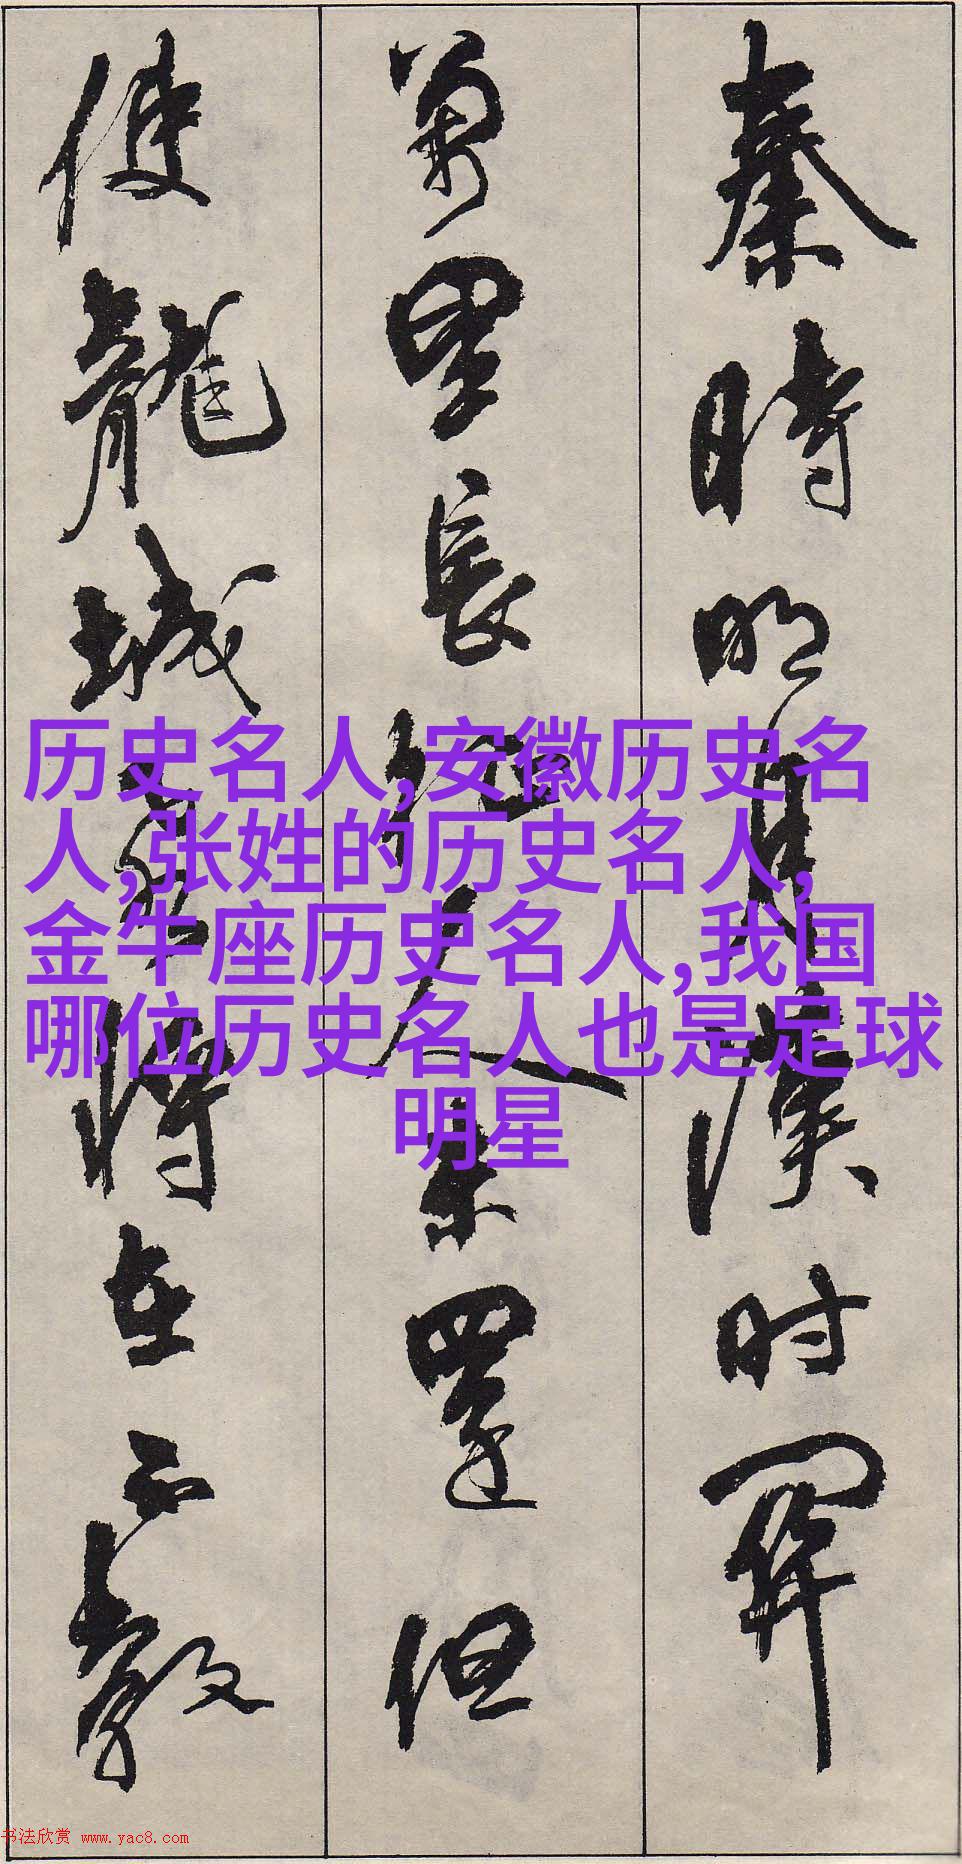 秦時明月漢时關
萬里長征人未還但
使龍城飛將在不教
历史名人,安徽历史名
人,张姓的历史名人,
金牛座历史名人,我国
哪位历史名人也是足球
明星
书法欣赏 www.yac8.com